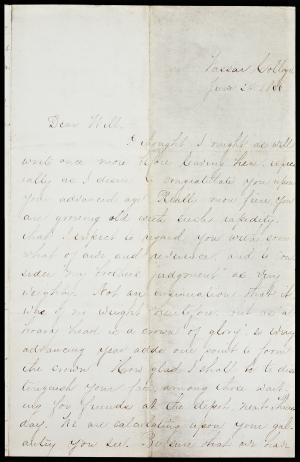 Vassar College
June 20
Dear Will,
I thought I might as well
write once more before leaving here, espec
ially as I desire to congratulate you upon
your advanced age! Really more fine, you
are growing old with such rapidity,
that I expect to regard you with some
what of awe and reverence, and to con
sider my brother's judgment as very
weighty. Not an insinuation that it
was of no weight heretofore, but as a
hoary head is a crown "of glory" so every
advancing year adds one point to form
the crown. How glad I shall be to dis
tinguish your face among those wait
ing for friends at the depot, next Thurs
day. We are calculating upon your gal
lantry you see. Be sure that we have